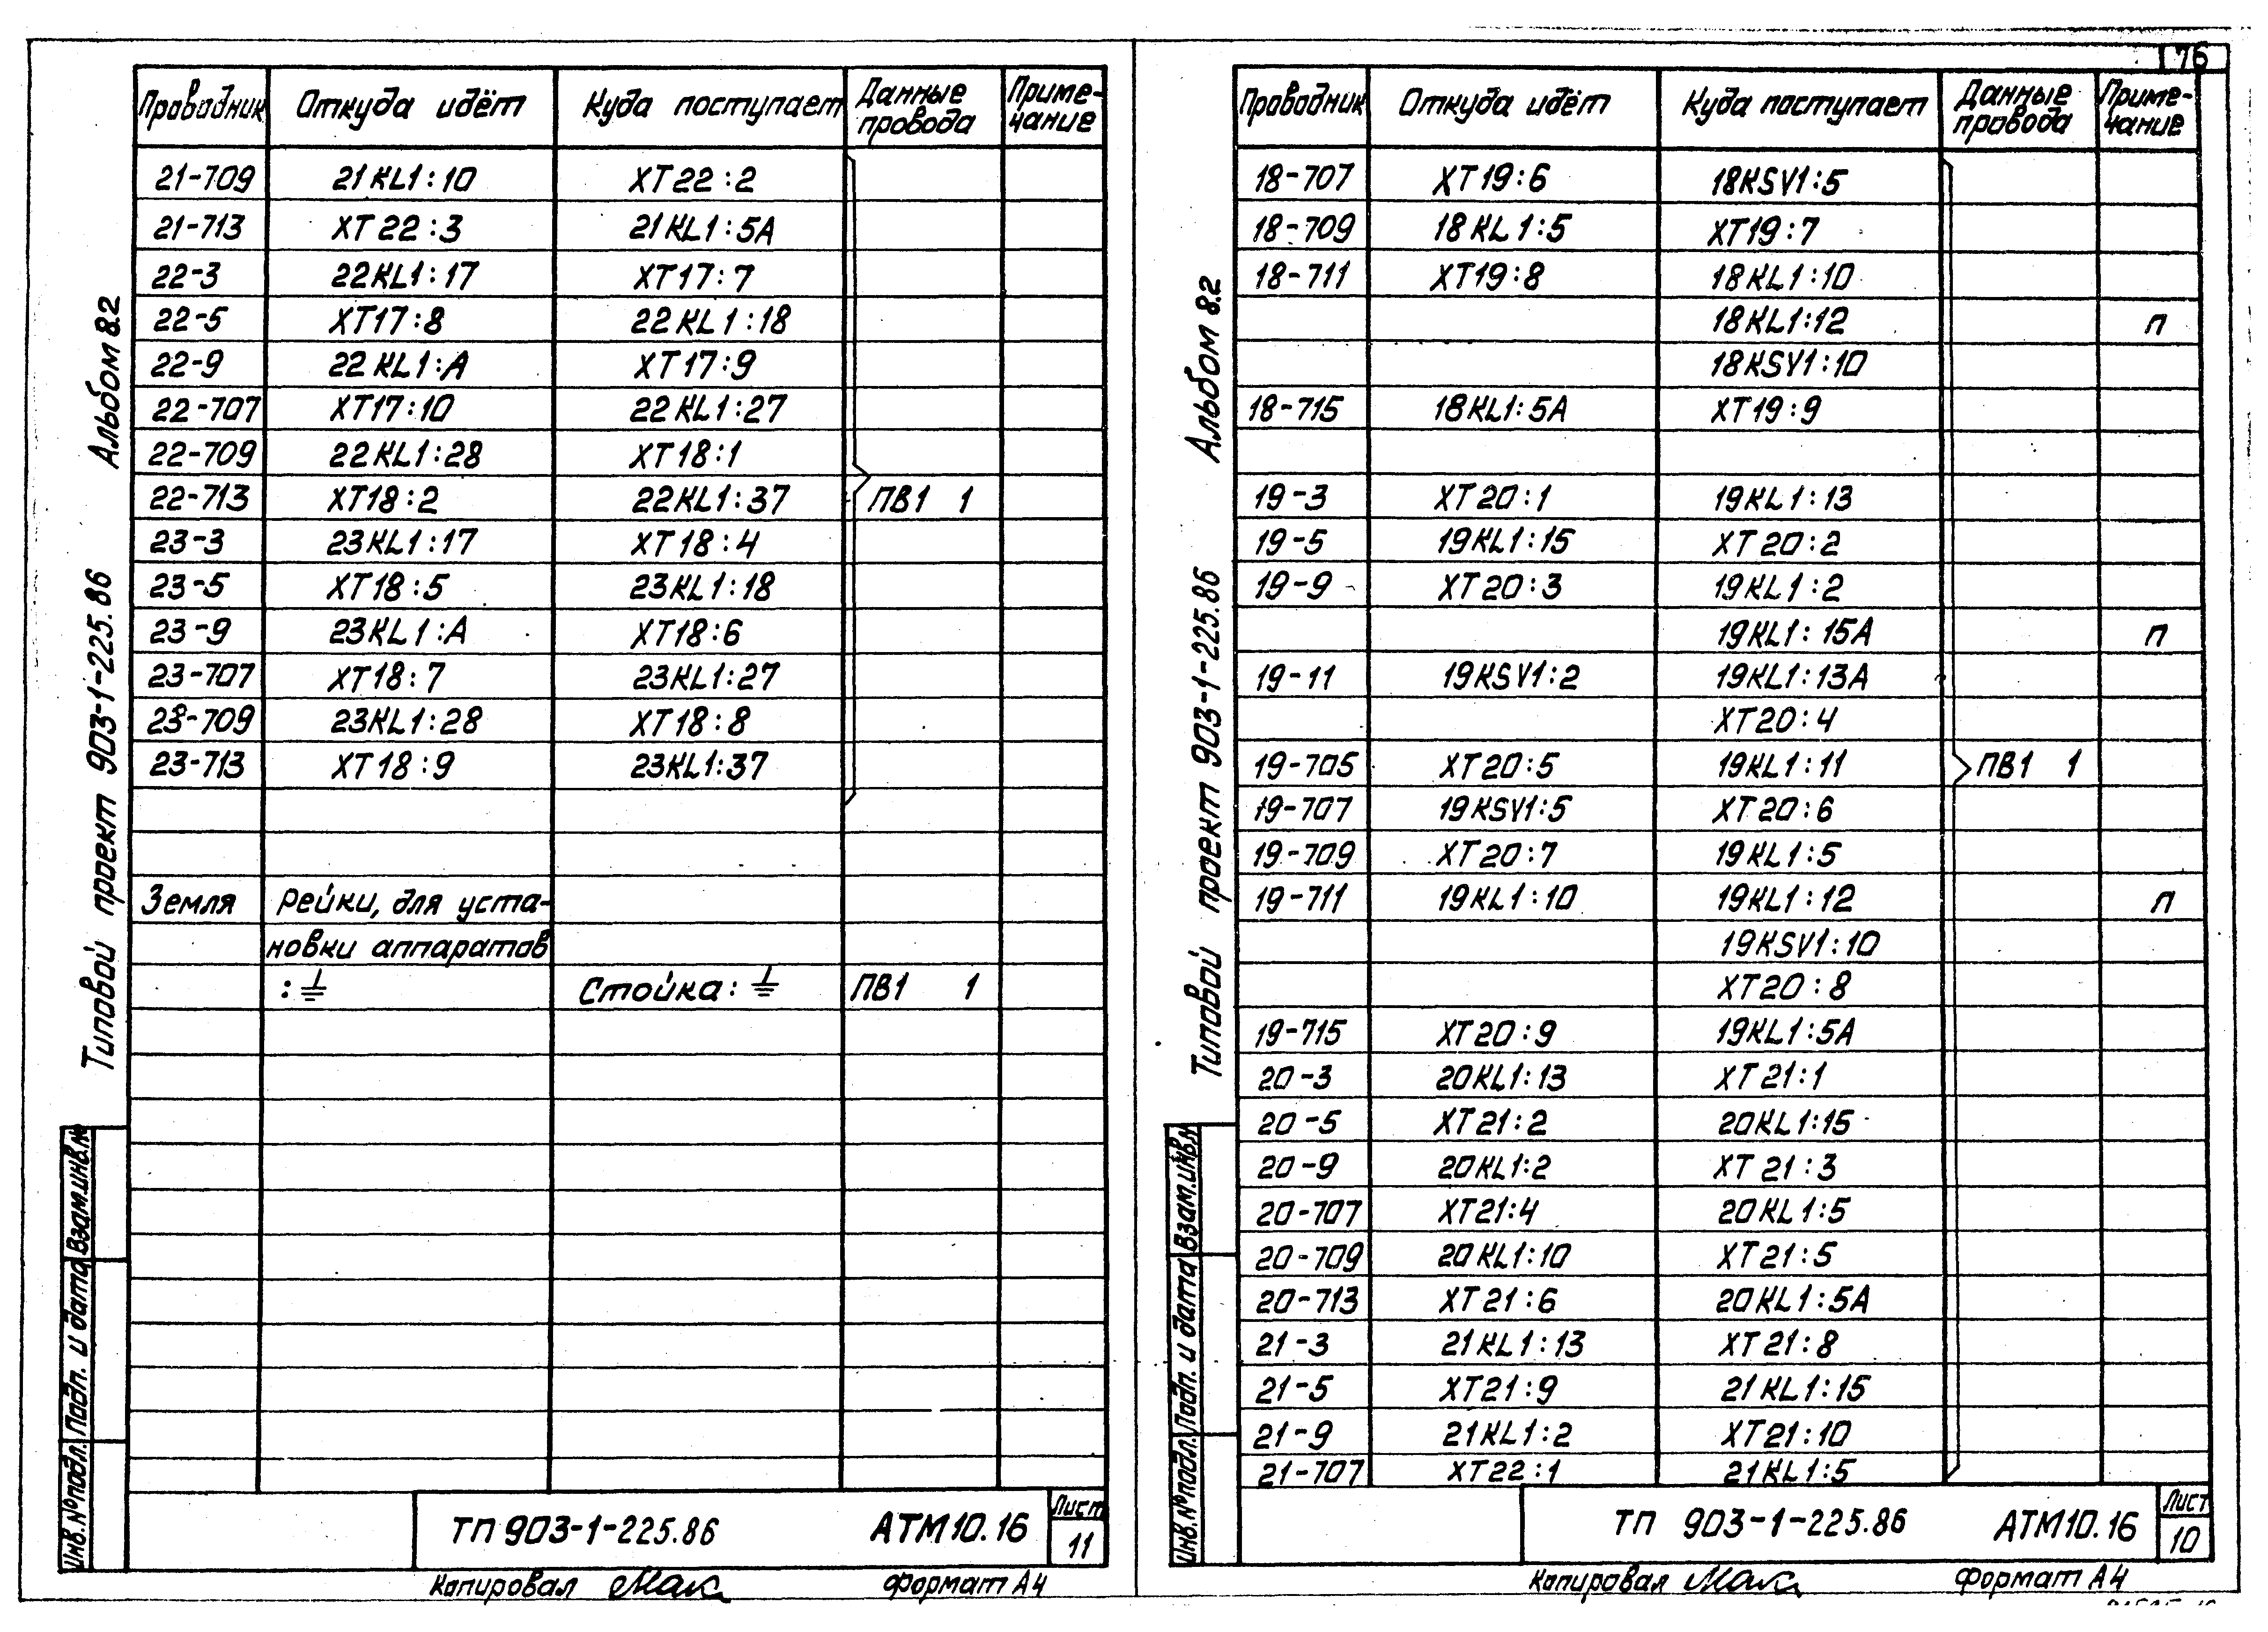 Проводник Откуда идёт Куда поступает Данные провода Приме-чание
21-709 21KL1:10 XT22:2
21-713 XT22:3 21KL1:5A
22-3 22KL1:17 XT17:7
22-5 XT17:8 22KL1:18
22-9 22KL1:A XT17:9
22-707 XT17:10 22KL1:27
22-709 22KL1:28 XT18:1
22-713 XT18:2 22KL1:37 ПВ1 1
23-3 23KL1:17 XT18:4
23-5 XT18:5 23KL1:18
23-9 23KL1:A XT18:6
23-707 XT18:7 23KL1:27
23-709 23KL1:28 XT18:8
23-713 XT18:9 23KL1:37
Земля Рейки, для уста-
новки аппаратов
:⏚ Стойка:⏚ ПВ1 1
Альбом 8.2
Типовой проект 903-1-225.86
Взам.инв.№
Подп. и дата
Инв.№подл.
ТП 903-1-225.86 АТМ10.16 Лист
11
Копировал Формат А4
176
Проводник Откуда идёт Куда поступает Данные провода Приме-чание
18-707 XT19:6 18KSV1:5
18-709 18KL1:5 XT19:7
18-711 XT19:8 18KL1:10
18KL1:12 п
18KSV1:10
18-715 18KL1:5A XT19:9
19-3 XT20:1 19KL1:13
19-5 19KL1:15 XT20:2
19-9 XT20:3 19KL1:2
19KL1:15A п
19-11 19KSV1:2 19KL1:13A
XT20:4
19-705 XT20:5 19KL1:11 ПВ1 1
19-707 19KSV1:5 XT20:6
19-709 XT20:7 19KL1:5
19-711 19KL1:10 19KL1:12 п
19KSV1:10
XT20:8
19-715 XT20:9 19KL1:5A
20-3 20KL1:13 XT21:1
20-5 XT21:2 20KL1:15
20-9 20KL1:2 XT21:3
20-707 XT21:4 20KL1:5
20-709 20KL1:10 XT21:5
20-713 XT21:6 20KL1:5A
21-3 21KL1:13 XT21:8
21-5 XT21:9 21KL1:15
21-9 21KL1:2 XT21:10
21-707 XT22:1 21KL1:5
Альбом 8.2
Типовой проект 903-1-225.86
Взам.инв.№
Подп. и дата
Инв.№подл.
ТП 903-1-225.86 АТМ10.16 Лист
10
Копировал Формат А4